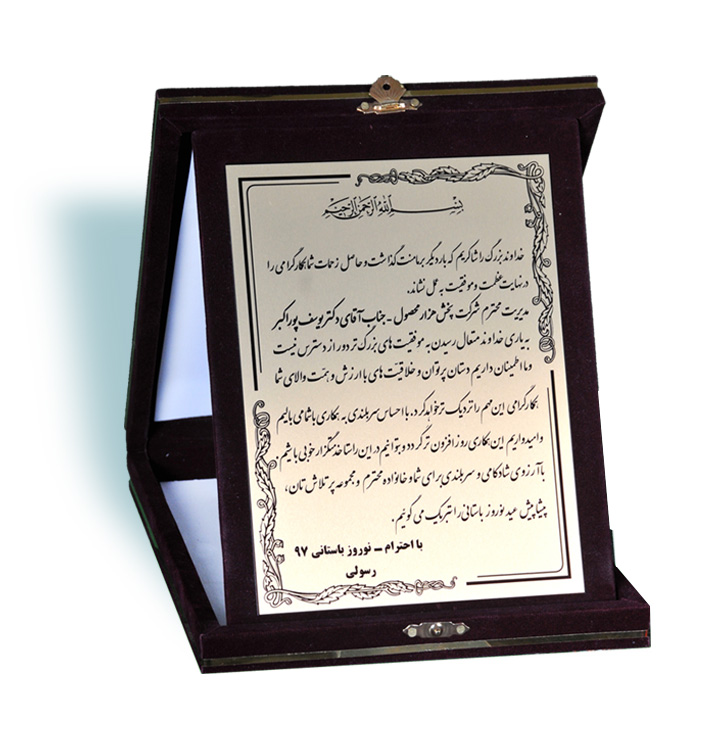 بسم الله الرحمن الرحیم
خداوند بزرگ را شاکریم که بار دیگر بر ما منت گذاشت و حاصل زحمات شما همکار گرامی را
در نهایت عظمت و موفقیت به عمل نشاند.
مدیریت محترم شرکت پخش هزار محصول - جناب آقای دکتر یوسف پوراکبر
به یاری خداوند متعال رسیدن به موفقیت های بزرگ تر دور از دسترس نیست
و ما اطمینان داریم دستان پرتوان و خلاقیت های با ارزش و همت والای شما
همکار گرامی این مهم را نزدیک تر خواهد کرد. با احساس سربلندی به همکاری با شما می بالیم
و امیدواریم این همکاری روز افزون تر گردد و بتوانیم در این راستا خدمتگزار خوبی باشیم.
با آرزوی شادکامی و سربلندی برای شما و خانواده محترم و مجموعه پر تلاش تان،
پیشاپیش عید نوروز باستانی را تبریک می گوئیم.
با احترام - نوروز باستانی ۹۷
رسولی